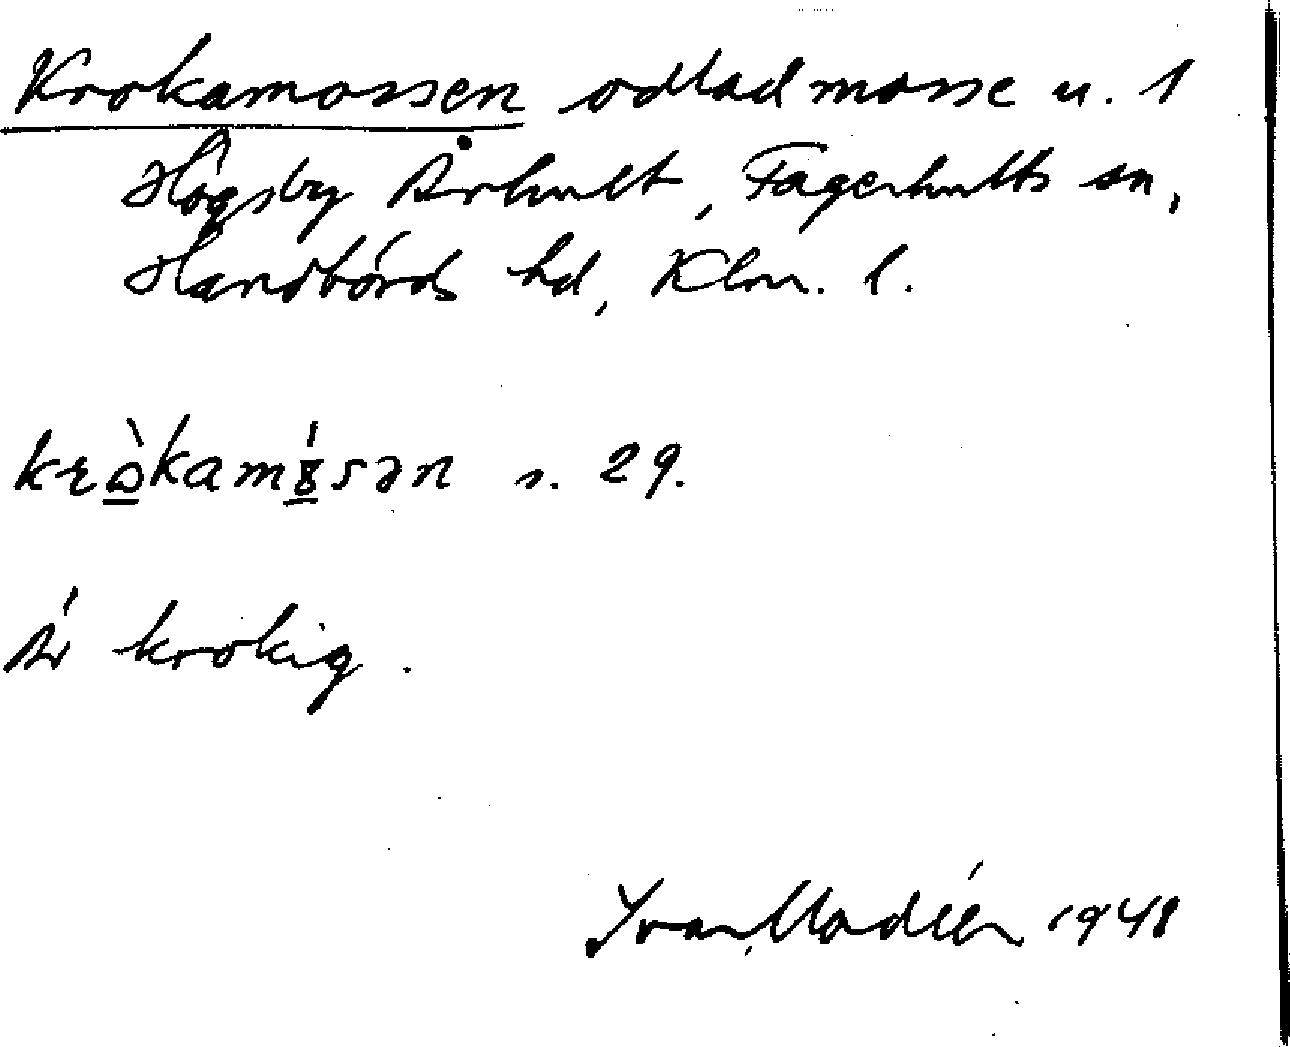 Krokamossen odlad mosse u. 1
Högsby Århult, Fagerhults sn,
Handbörds hd, Klm. l.
kròkamósən s. 29.
Är krokig.
Ivan Modéer 1948